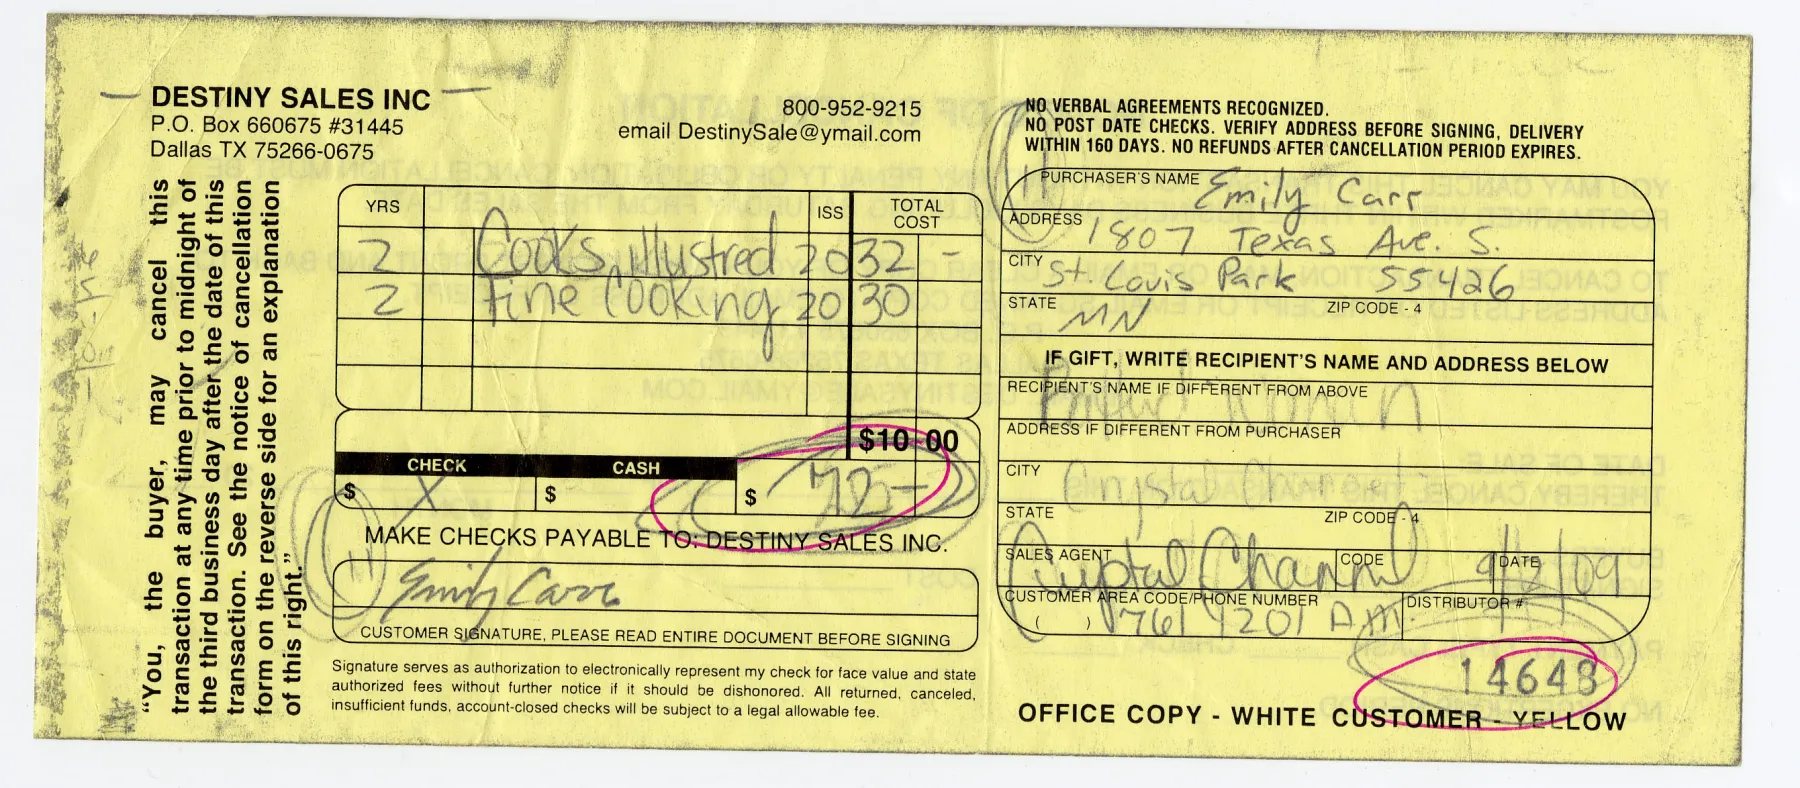 DESTINY SALES INC
P.O. Box 660675 #31445
Dallas TX 75266-0675
800-952-9215
email DestinySale@ymail.com
"You, the buyer, may cancel this
transaction at any time prior to midnight of
the third business day after the date of this
transaction. See the notice of cancellation
form on the reverse side for an explanation
of this right."
YRS ISS TOTAL COST
2 Cooks Illustred 20 32 -
2 Fine Cooking 20 30
$10 00
CHECK CASH
$ X $ $ 72 -
MAKE CHECKS PAYABLE TO: DESTINY SALES INC.
Emily Carr
CUSTOMER SIGNATURE, PLEASE READ ENTIRE DOCUMENT BEFORE SIGNING
Signature serves as authorization to electronically represent my check for face value and state
authorized fees without further notice if it should be dishonored. All returned, canceled,
insufficient funds, account-closed checks will be subject to a legal allowable fee.
NO VERBAL AGREEMENTS RECOGNIZED.
NO POST DATE CHECKS. VERIFY ADDRESS BEFORE SIGNING, DELIVERY
WITHIN 160 DAYS. NO REFUNDS AFTER CANCELLATION PERIOD EXPIRES.
PURCHASER'S NAME Emily Carr
ADDRESS 1807 Texas Ave. S.
CITY St. Louis Park 55426
STATE MN ZIP CODE - 4
IF GIFT, WRITE RECIPIENT'S NAME AND ADDRESS BELOW
RECIPIENT'S NAME IF DIFFERENT FROM ABOVE
ADDRESS IF DIFFERENT FROM PURCHASER
CITY Crystal
STATE ZIP CODE - 4
SALES AGENT Crystal CODE DATE 9/2/09
CUSTOMER AREA CODE/PHONE NUMBER DISTRIBUTOR #
( ) 761 1201 A.M.
14648
OFFICE COPY - WHITE CUSTOMER - YELLOW